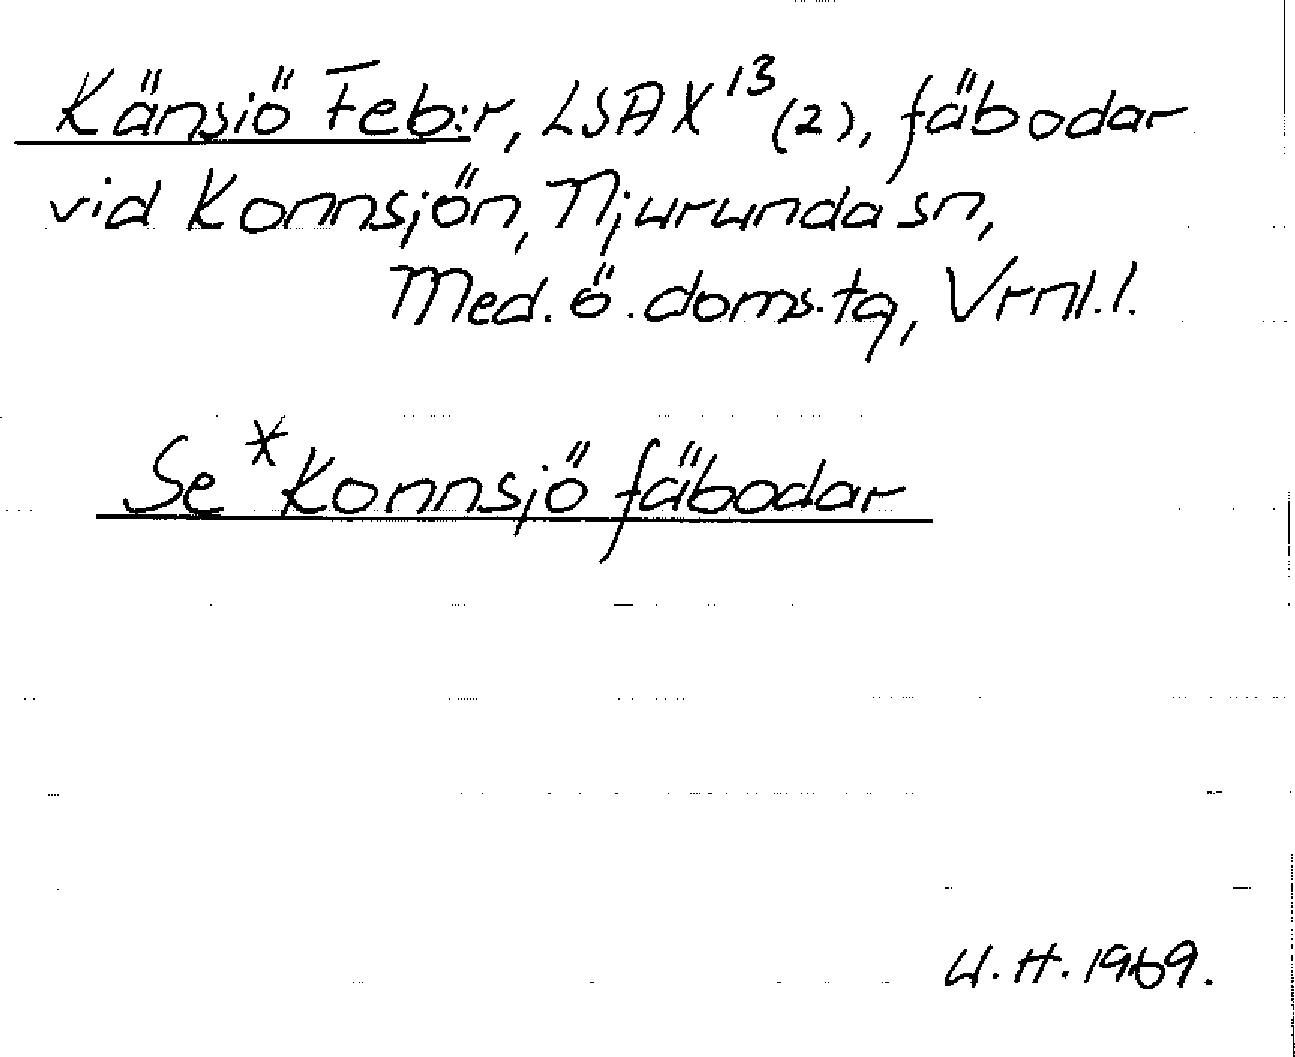 Känsiö Feb:r, LSA X¹³ (2), fäbodar
vid Konnsjön, Njurunda sn,
Med. ö. doms. tg, Vrnl. l.
Se *Konnsjö fäbodar
U. H. 1969.